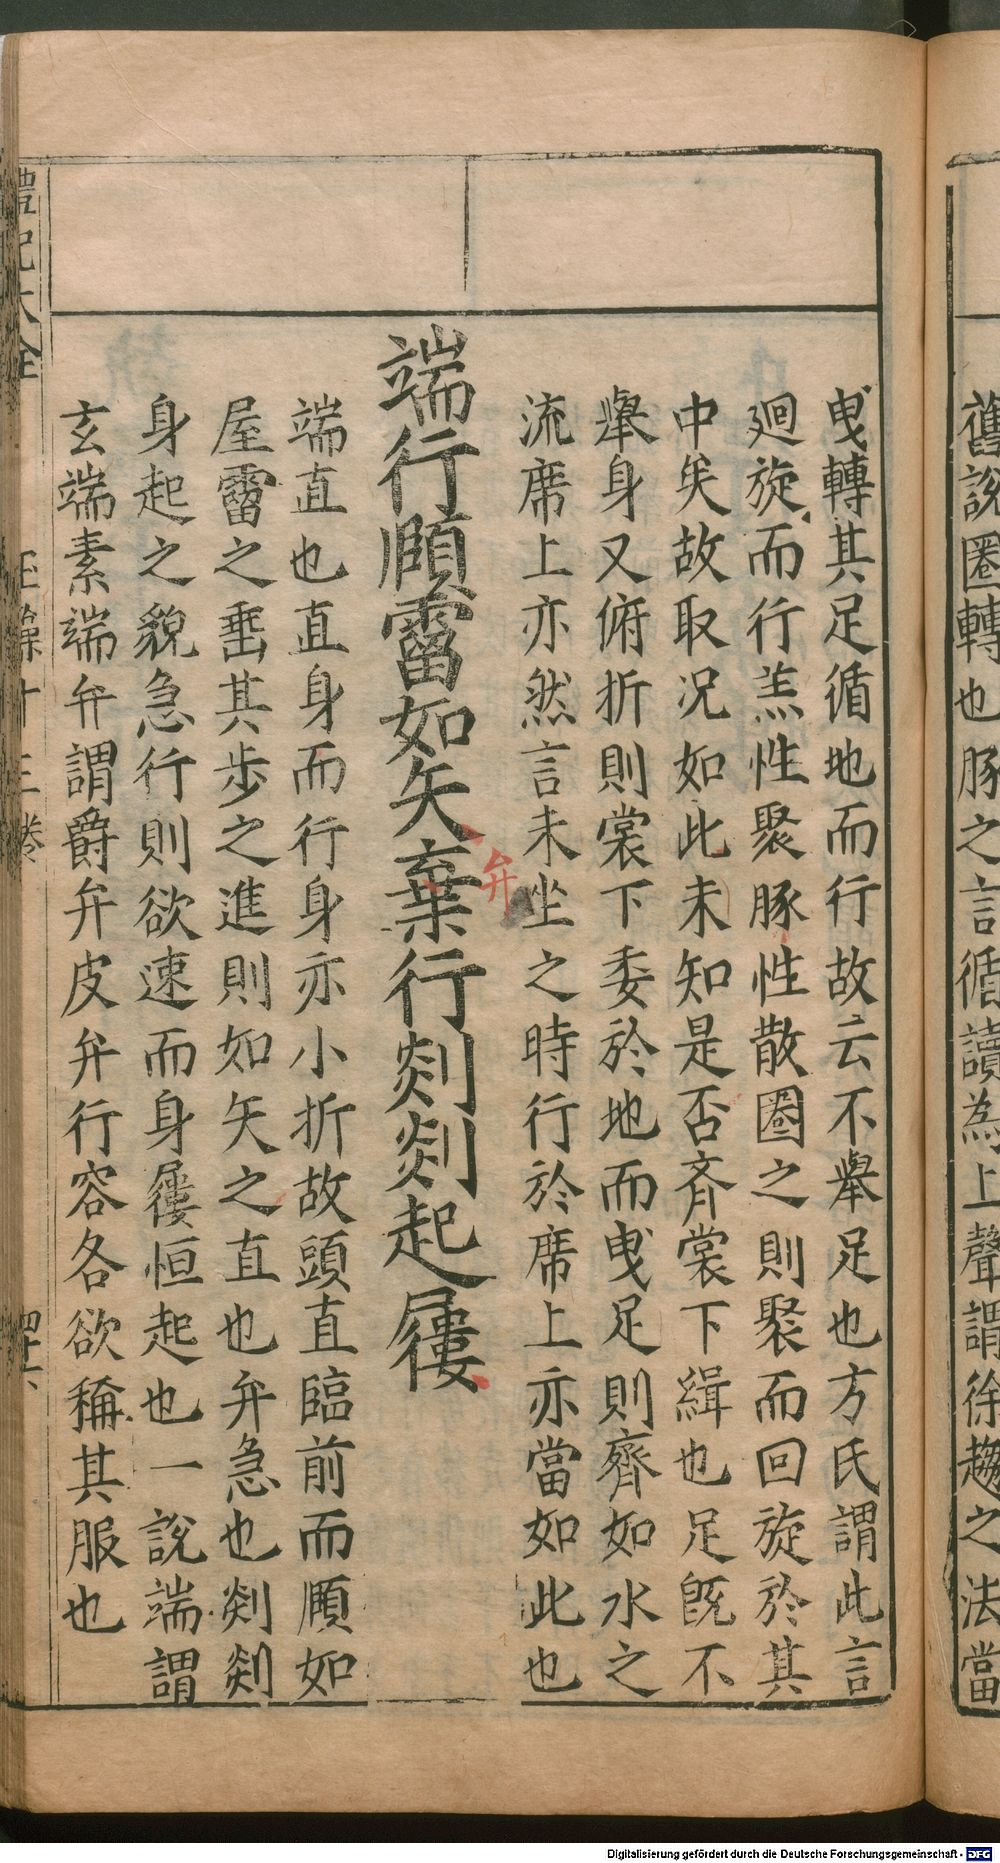 舊說圈轉也豚之言循讀為上聲謂徐趨之法當
曵轉其足循地而行故云不舉足也方氏謂此言
廻旋而行羔性聚豚性散圈之則聚而回旋於其
中矣故取况如此未知是否齊裳下緝也足旣不
舉身又俯折則裳下委於地而曵足則齊如水之
流席上亦然言未坐之時行於席上亦當如此也
端行頤霤如矢棄行剡剡起屨
弁
端直也直身而行身亦小折故頭直臨前而頤如
屋霤之垂其步之進則如矢之直也弁急也剡剡
身起之貌急行則欲速而身屨恒起也一說端謂
玄端素端弁謂爵弁皮弁行容各欲稱其服也
禮記大全
玉藻十三卷
四十六
Digitalisierung gefördert durch die Deutsche Forschungsgemeinschaft - DFG